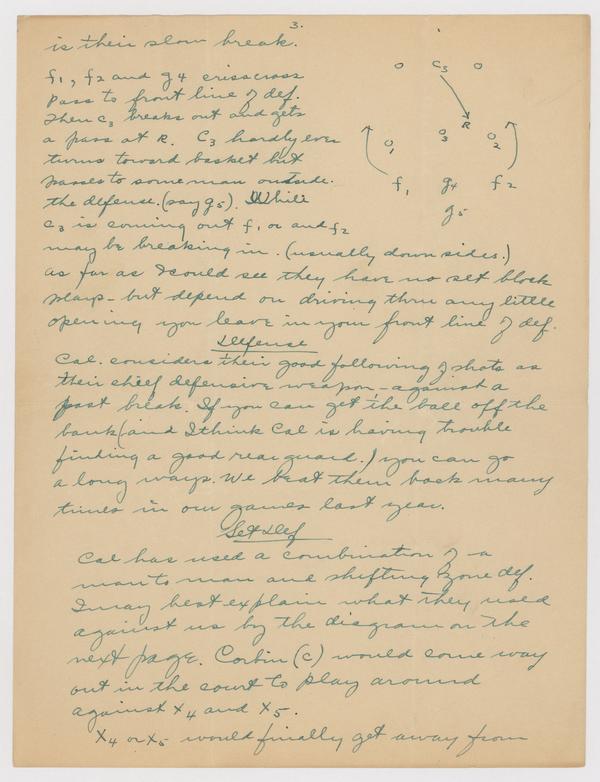 3.
is their slow break.
f1, f2 and g4 crisscross
pass to front line of def.
Then c3 breaks out and gets
a pass at R. C3 hardly ever
turns toward basket but
passes to some man outside
the defense. (say g5). While
c3 is coming out f1 or and f2
may be breaking in. (usually down sides.)
as far as I could see they have no set block
plays - but depend on driving thru any little
opening you leave in your front line of def.
Defense
Cal. considers their good following of shots as
their chief defensive weapon - against a
fast break. If you can get the ball off the
bank (and I think Cal is having trouble
finding a good rear guard.) you can go
a long ways. We beat them back many
times in our games last year.
Set Def
Cal has used a combination of a
man to man and shifting zone def.
I may best explain what they used
against us by the diagram on the
next page. Corbin (C) would come way
out in the court to play around
against X4 and X5.
X4 or X5 would finally get away from
O C3 O
R
O1 O3 O2
f1 g4 f2
g5